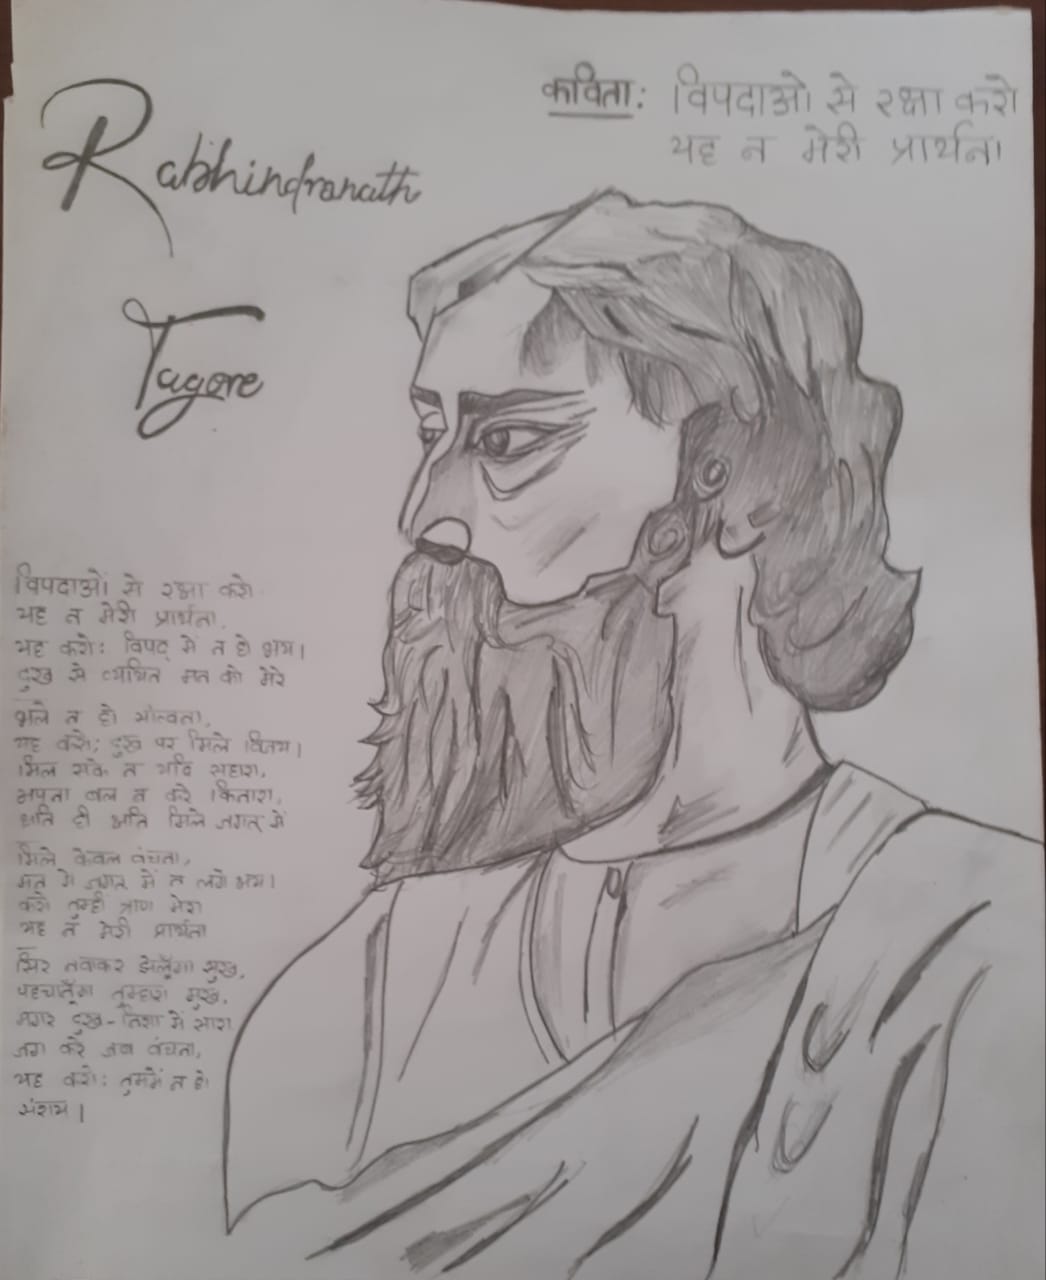 Rabhindranath
Tagore
कविता: विपदाओं से रक्षा करो
यह न मेरी प्रार्थना
विपदाओं से रक्षा करो
यह न मेरी प्रार्थना,
यह करो: विपद् में न हो भय।
दुख से व्यथित मन को मेरे
भले न हो सांत्वना,
यह करो; दुख पर मिले विजय।
मिल सके न यदि सहारा,
अपना बल न करे किनारा,
क्षति ही क्षति मिले जगत् में
मिले केवल वंचना,
मन में जगत् में न लगे क्षय।
करो तुम्हीं त्राण मेरा
यह न मेरी प्रार्थना
सिर नवाकर झेलूँगा सुख,
पहचानूँगा तुम्हारा मुख,
मगर दुख-निशा में सारा
जग करे जब वंचना,
यह करो: तुममें न हो
संशय।